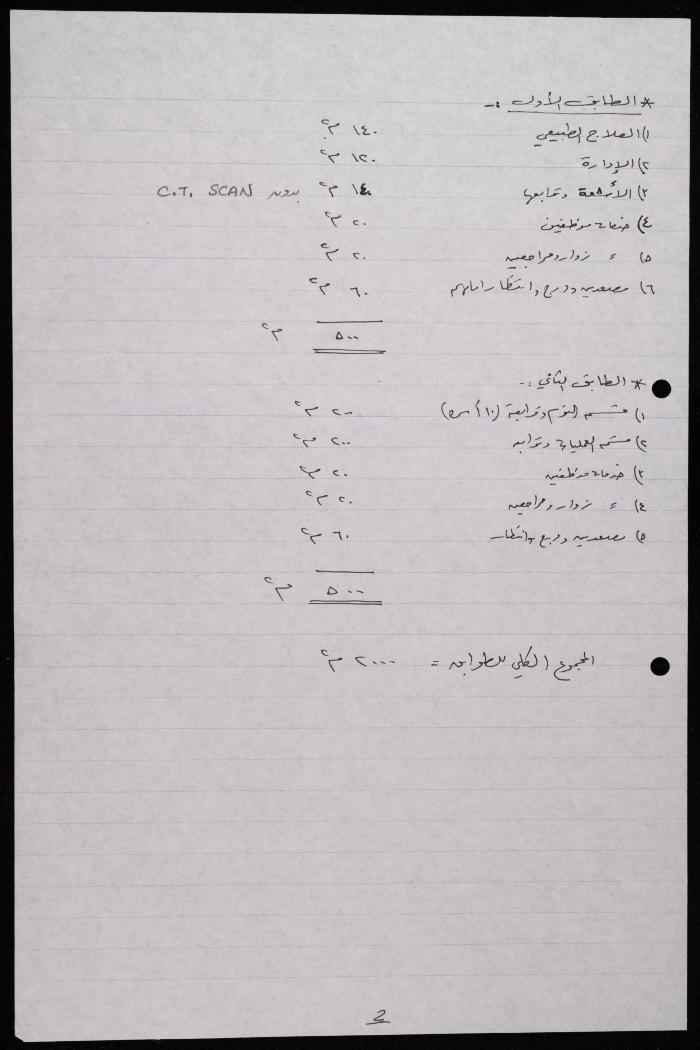 * الطابق الأول :-
١) العلاج الطبيعي ١٤٠ م٢
٢) الإدارة ١٢٠ م٢
٣) الأشعة وتوابعها ١٤٠ م٢ بدون C.T. SCAN
٤) خدمات موظفين ٢٠ م٢
٥) = زوار ومراجعين ٢٠ م٢
٦) مصعدين ودرج وانتظار ٦٠ م٢
٥٠٠ م٢
* الطابق الثاني :-
١) قسم النوم وتوابعه (١٠ أسرة) ٢٠٠ م٢
٢) قسم العمليات وتوابعه ٢٠٠ م٢
٣) خدمات موظفين ٢٠ م٢
٤) = زوار ومراجعين ٢٠ م٢
٥) مصعدين ودرج وانتظار ٦٠ م٢
٥٠٠ م٢
المجموع الكلي للطوابق = ٢٠٠٠ م٢
2